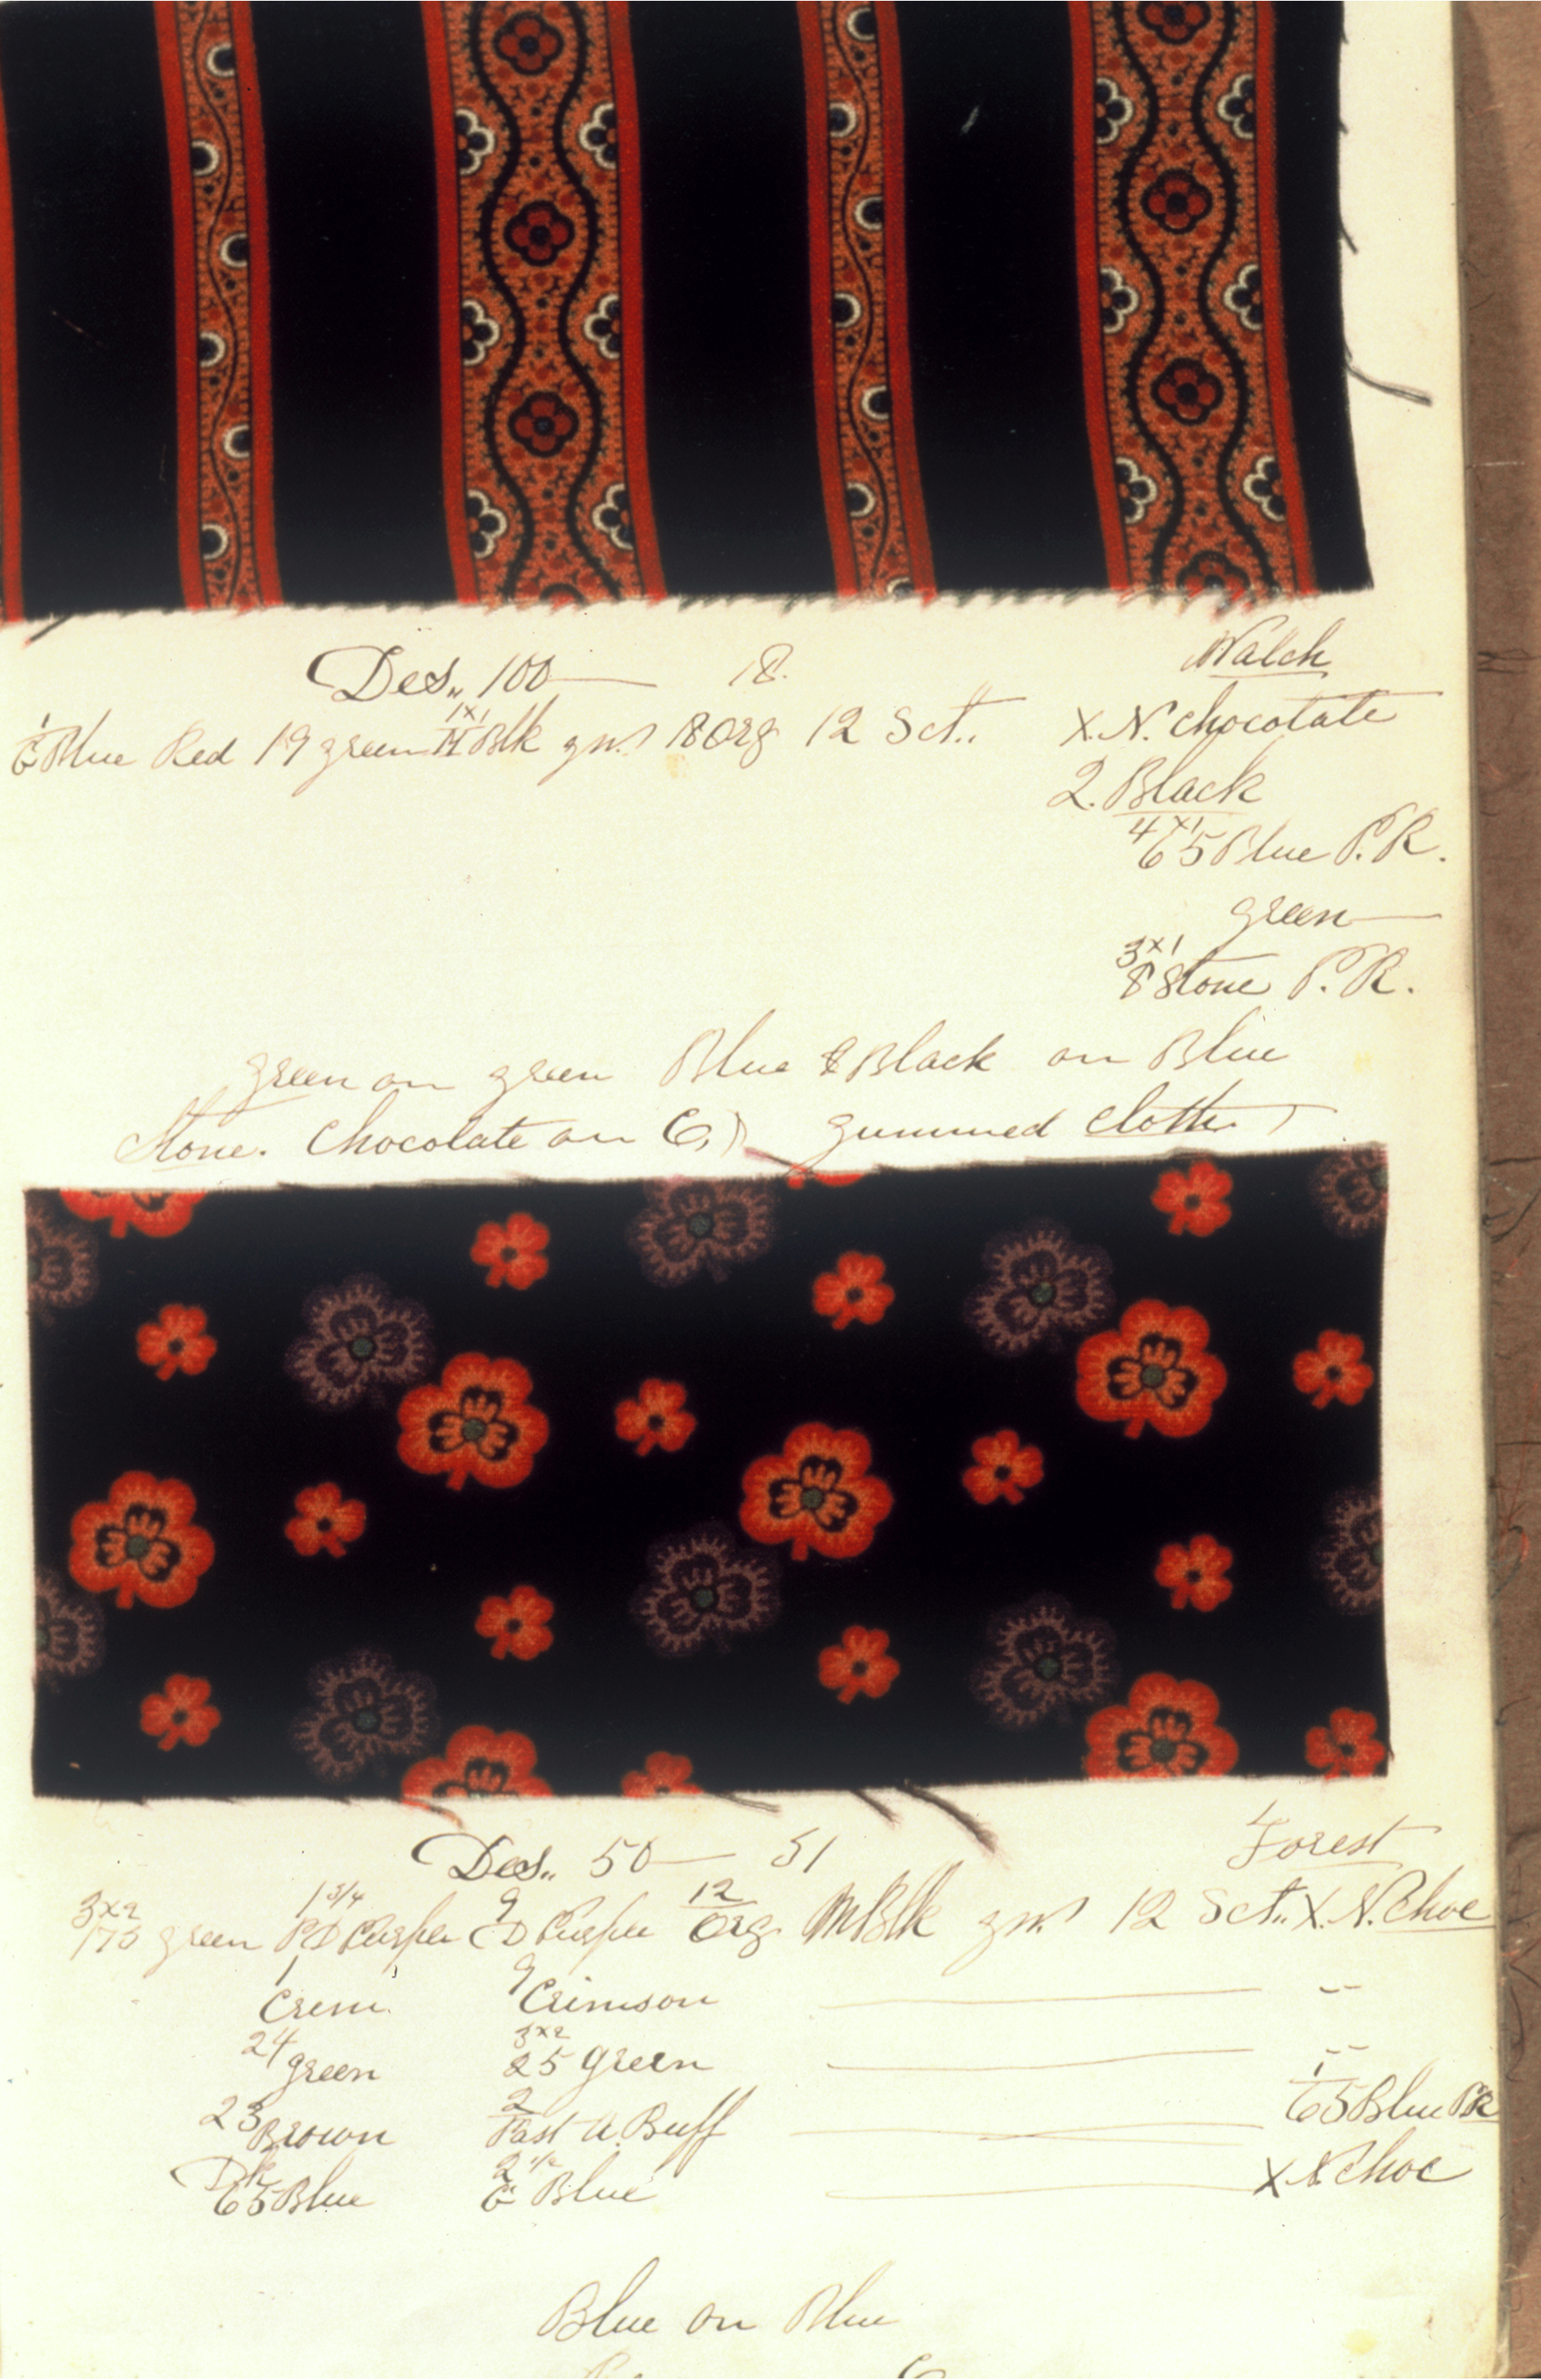 Des,, 100 — 18. Walch
1 C Blue Red 19 green 1x1 M Blk gn. 18 Org 12 Sct.. X. N. chocolate
2. Black
4x1 65 Blue P. R.
green —
3x1 8 Stone P. R.
green on green Blue & Black on Blue
Stone. Chocolate on C, gummed cloth
Des,, 50 — 51 Forest
3x2 175 green 1 3/4 P D Purple 9 C D Purple 12 Org M Blk gn. 12 Sct.. X. N. Choc
1 Crem. 9 Crimson — --
24 green 3x2 25 green — --
23 Brown 2 Fast A. Buff — 1 65 Blue PR
Dk 65 Blue 2 1/2 C Blue — X N Choc
Blue on Blue